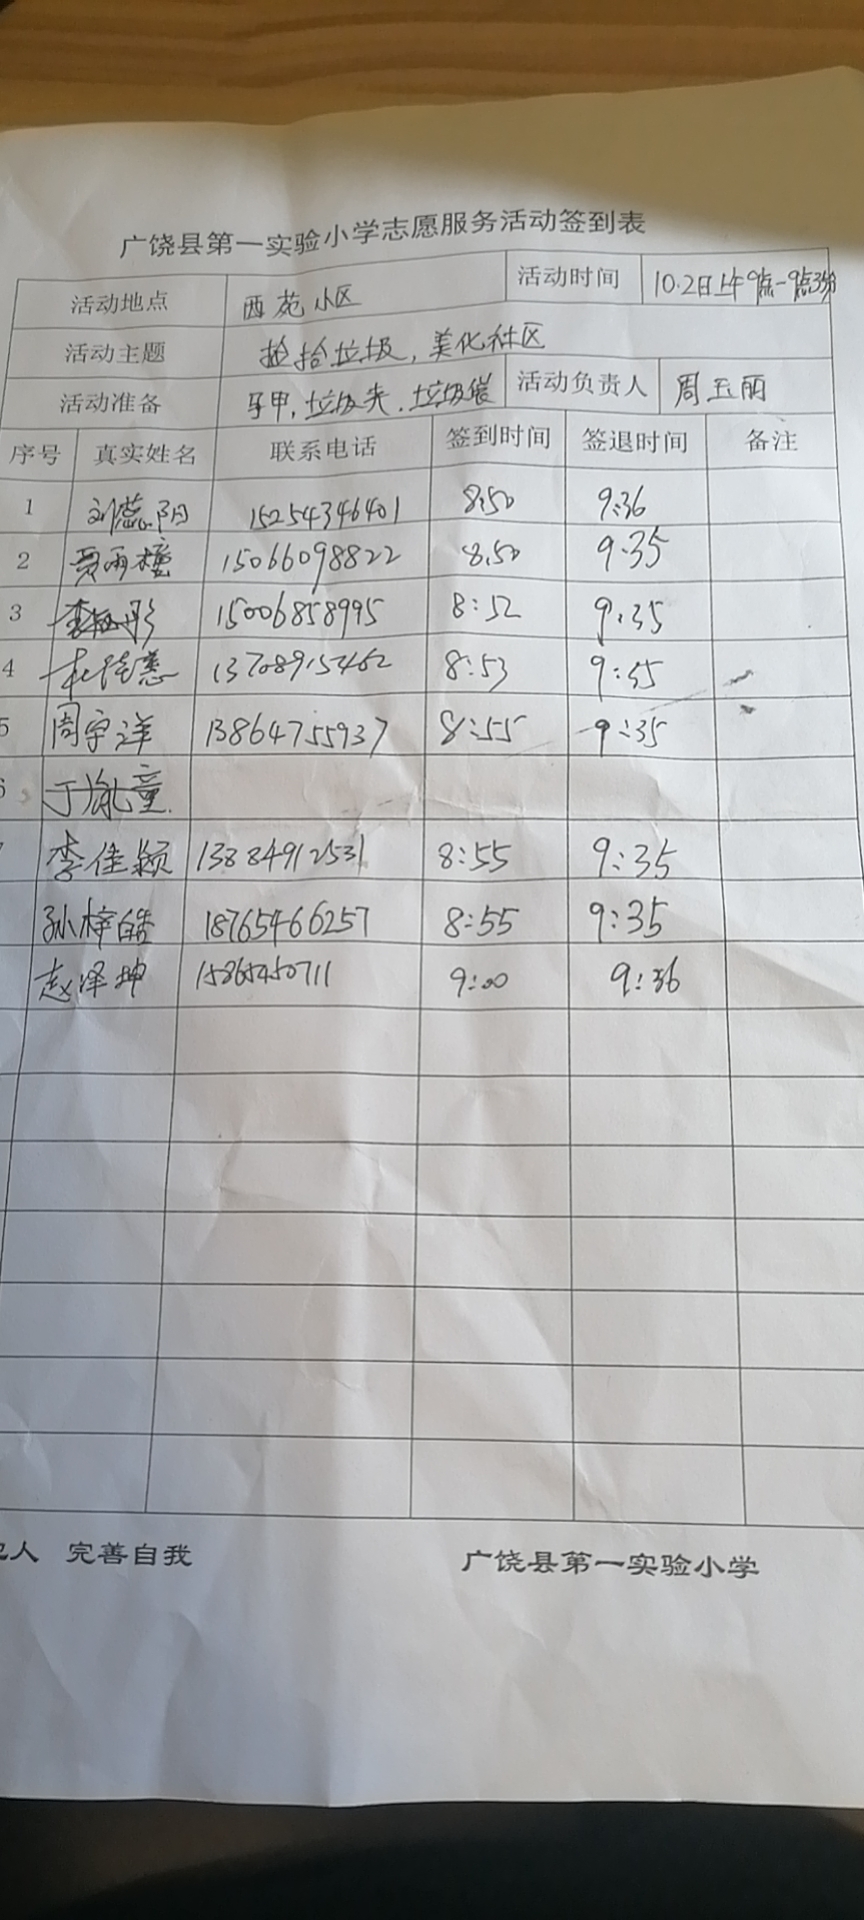 广饶县第一实验小学志愿服务活动签到表
活动地点 西苑小区 活动时间 10.2日上午9点-9点3分
活动主题 捡拾垃圾,美化社区
活动准备 马甲,垃圾夹.垃圾袋 活动负责人 周玉丽
序号 真实姓名 联系电话 签到时间 签退时间 备注
1 刘蕊阳 15254346401 8:50 9:36
2 贾雨橦 15066098822 8:50 9:35
3 15006858995 8:52 9:35
4 13708915462 8:53 9:35
5 周宇洋 13864755937 8:55 9:35
6 于胤童
李佳颖 13884912531 8:55 9:35
孙梓皓 18765466257 8:55 9:35
赵泽坤 15865450711 9:00 9:36
人 完善自我 广饶县第一实验小学